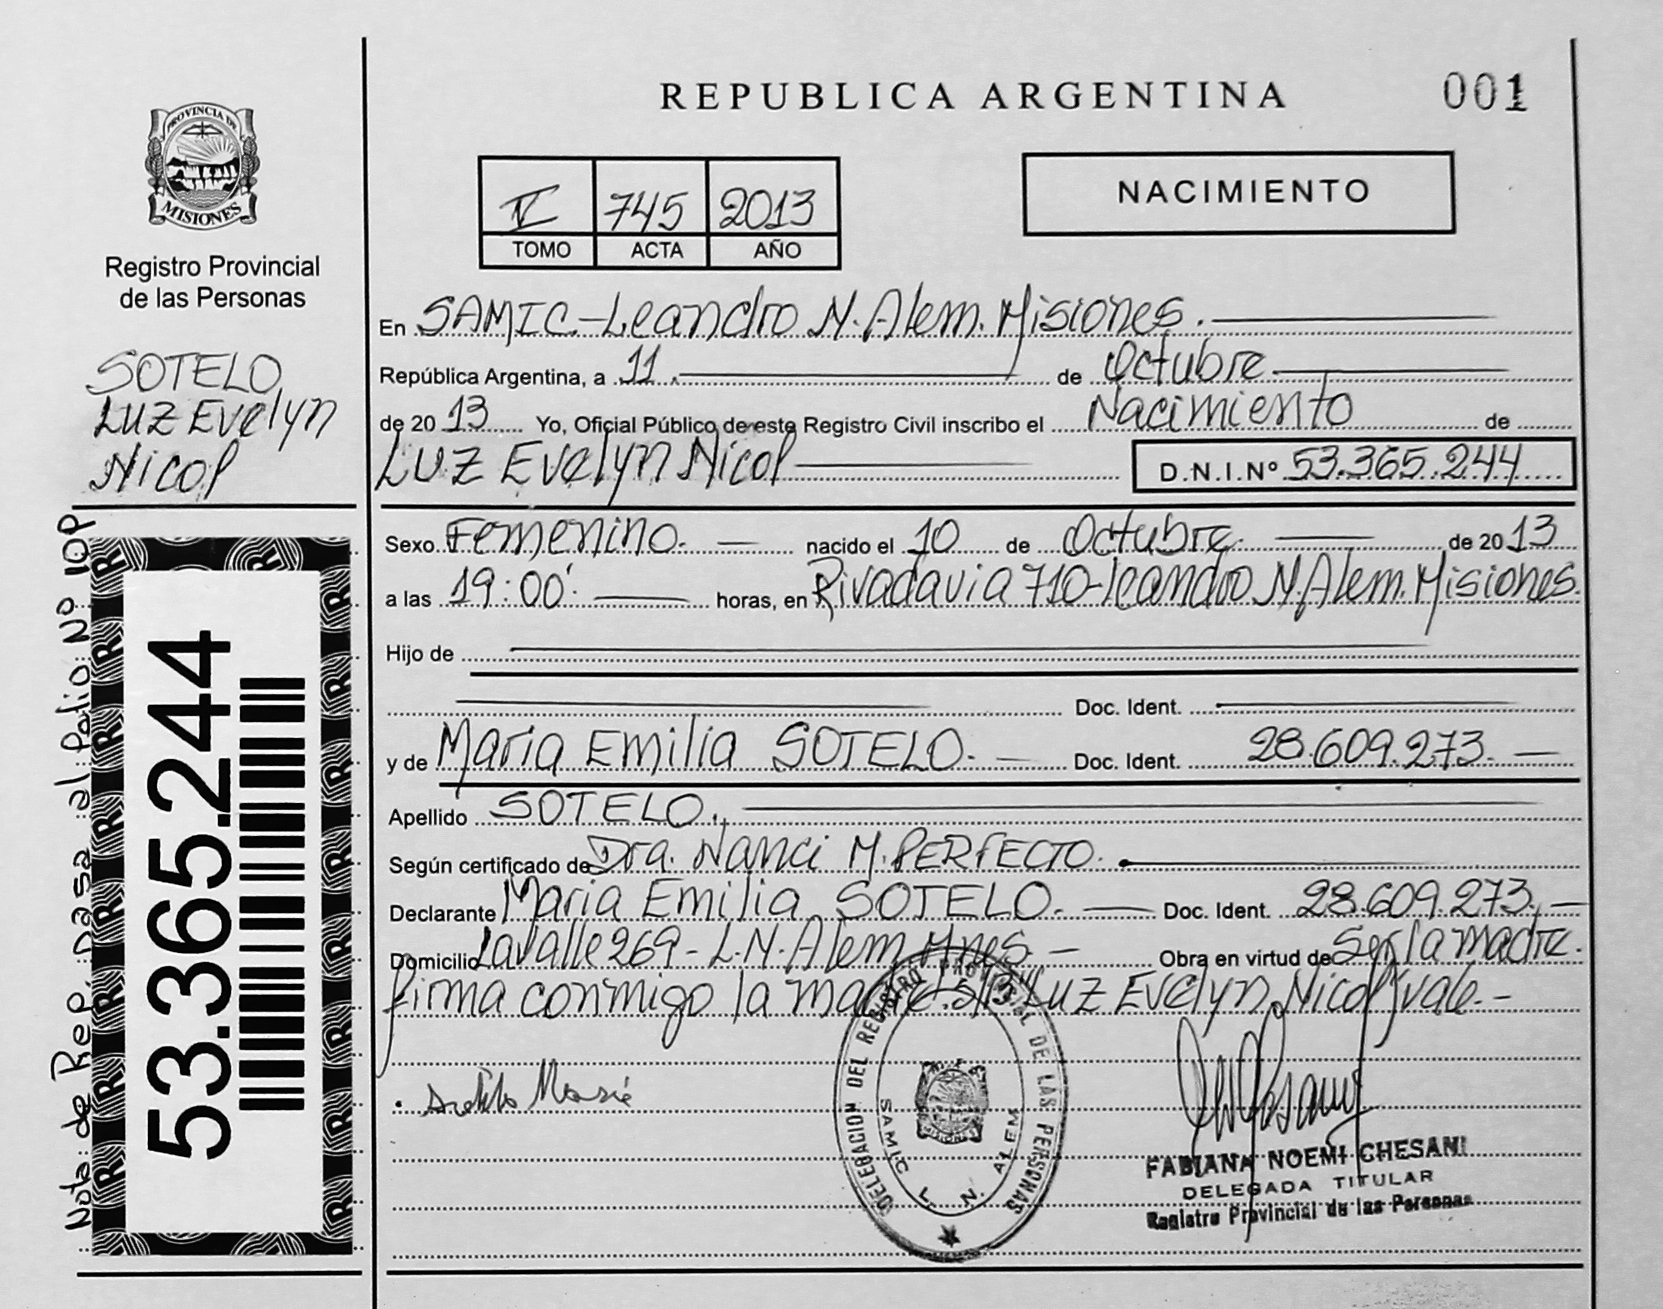 REPUBLICA ARGENTINA
001
PROVINCIA DE
MISIONES
Registro Provincial
de las Personas
SOTELO
LUZ Evelyn
Nicol
Nota: de Rep. pasa al Folio: Nº 10P
53.365.244
745 2013
TOMO ACTA AÑO
NACIMIENTO
En SAMIC.-Leandro N. Alem. Misiones.
República Argentina, a 11. de Octubre
de 2013 Yo, Oficial Público de este Registro Civil inscribo el Nacimiento de
LUZ Evelyn Nicol D.N.I.Nº 53.365.244
Sexo Femenino. nacido el 10 de Octubre. de 2013
a las 19:00' horas, en Rivadavia 710-Leandro N. Alem. Misiones.
Hijo de
Doc. Ident.
y de Maria Emilia SOTELO. Doc. Ident. 28.609.273.
Apellido SOTELO.
Según certificado de Dra. Nanci M. PERFECTO.
Declarante Maria Emilia SOTELO. Doc. Ident. 28.609.273.
Domicilio Lavalle 269 - L.N. Alem. Mnes. Obra en virtud de Ser la madre.
firma conmigo la LUZ Evelyn, Nicol vale.-
DELEGACION DEL REGISTRO PROVINCIAL DE LAS PERSONAS
SAMIC L. N. ALEM
FABIANA NOEMI CHESANI
DELEGADA TITULAR
Registro Provincial de las Personas